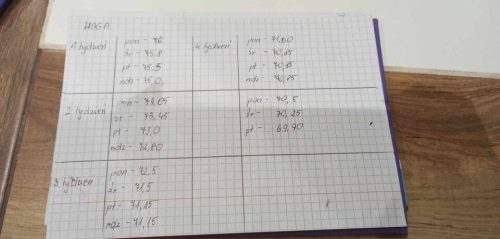 WAGA
1 tydzień
pon - 76
śr - 75,8
pt - 75,5
ndz - 75,0
4 tydzień
pon - 71,00
śr - 70,85
pt - 70,85
ndz - 70,85
2 tydzień
pon - 74,05
śr - 73,45
pt - 73,0
ndz - 72,80
pon - 70,5
śr - 70,25
pt - 69,90
3 tydzień
pon - 72,5
śr - 71,5
pt - 71,15
ndz - 71,15